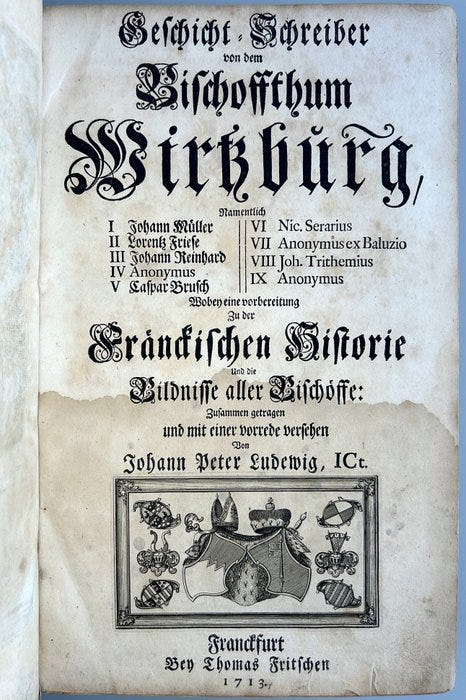 Geschicht-Schreiber
von dem
Bischoffthum
Wirtzburg,
Namentlich
I Johann Müller
II Lorentz Friese
III Johann Reinhard
IV Anonymus
V Caspar Brusch
VI Nic. Serarius
VII Anonymus ex Baluzio
VIII Joh. Trithemius
IX Anonymus
Wobey eine vorbereitung
Zu der
Fränckischen Historie
Und die
Bildnisse aller Bischöffe:
Zusammen getragen
und mit einer vorrede versehen
Von
Johann Peter Ludewig, ICt.
Franckfurt
Bey Thomas Fritschen
1713.